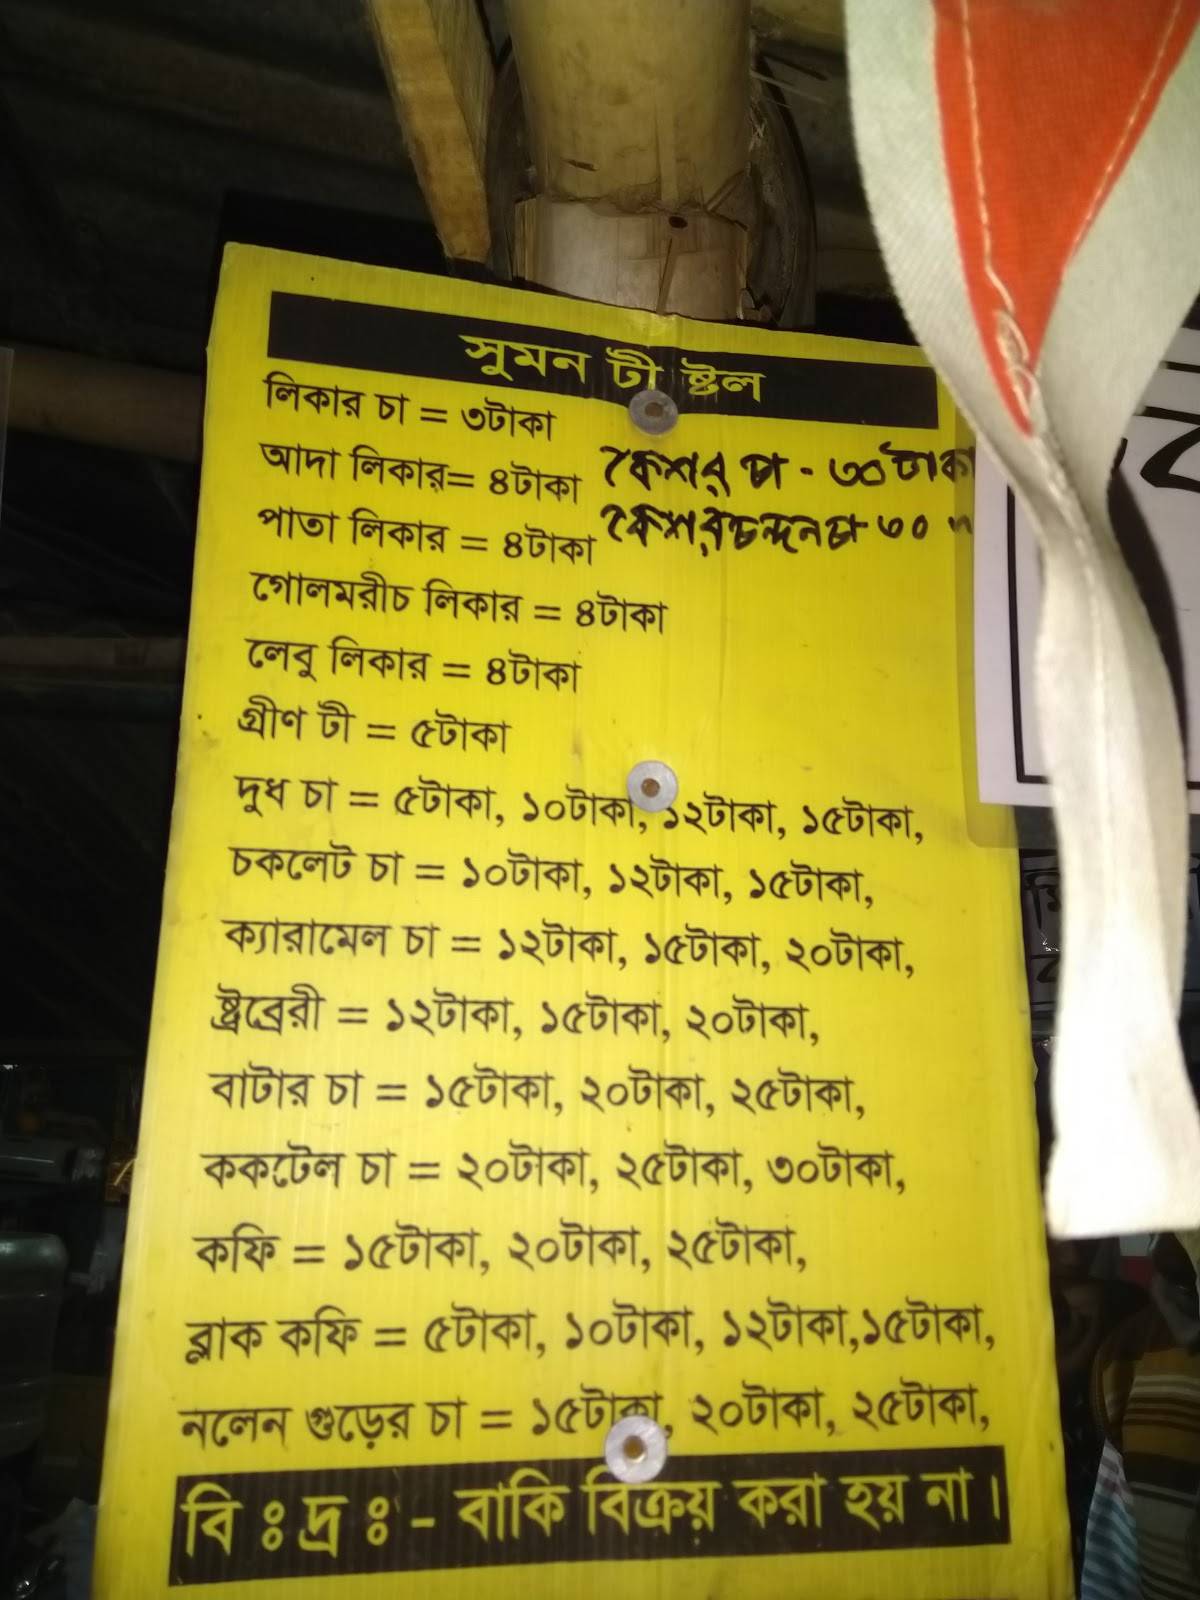 সুমন টী ষ্টল
লিকার চা = ৩টাকা
আদা লিকার= ৪টাকা
কেশর চা - ৩০টাকা
পাতা লিকার = ৪টাকা
কেশর চন্দন চা - ৩০ "
গোলমরীচ লিকার = ৪টাকা
লেবু লিকার = ৪টাকা
গ্রীণ টী = ৫টাকা
দুধ চা = ৫টাকা, ১০টাকা, ১২টাকা, ১৫টাকা,
চকলেট চা = ১০টাকা, ১২টাকা, ১৫টাকা,
ক্যারামেল চা = ১২টাকা, ১৫টাকা, ২০টাকা,
ষ্ট্রব্রেরী = ১২টাকা, ১৫টাকা, ২০টাকা,
বাটার চা = ১৫টাকা, ২০টাকা, ২৫টাকা,
ককটেল চা = ২০টাকা, ২৫টাকা, ৩০টাকা,
কফি = ১৫টাকা, ২০টাকা, ২৫টাকা,
ব্লাক কফি = ৫টাকা, ১০টাকা, ১২টাকা,১৫টাকা,
নলেন গুড়ের চা = ১৫টাকা, ২০টাকা, ২৫টাকা,
বি ঃ দ্র ঃ - বাকি বিক্রয় করা হয় না।